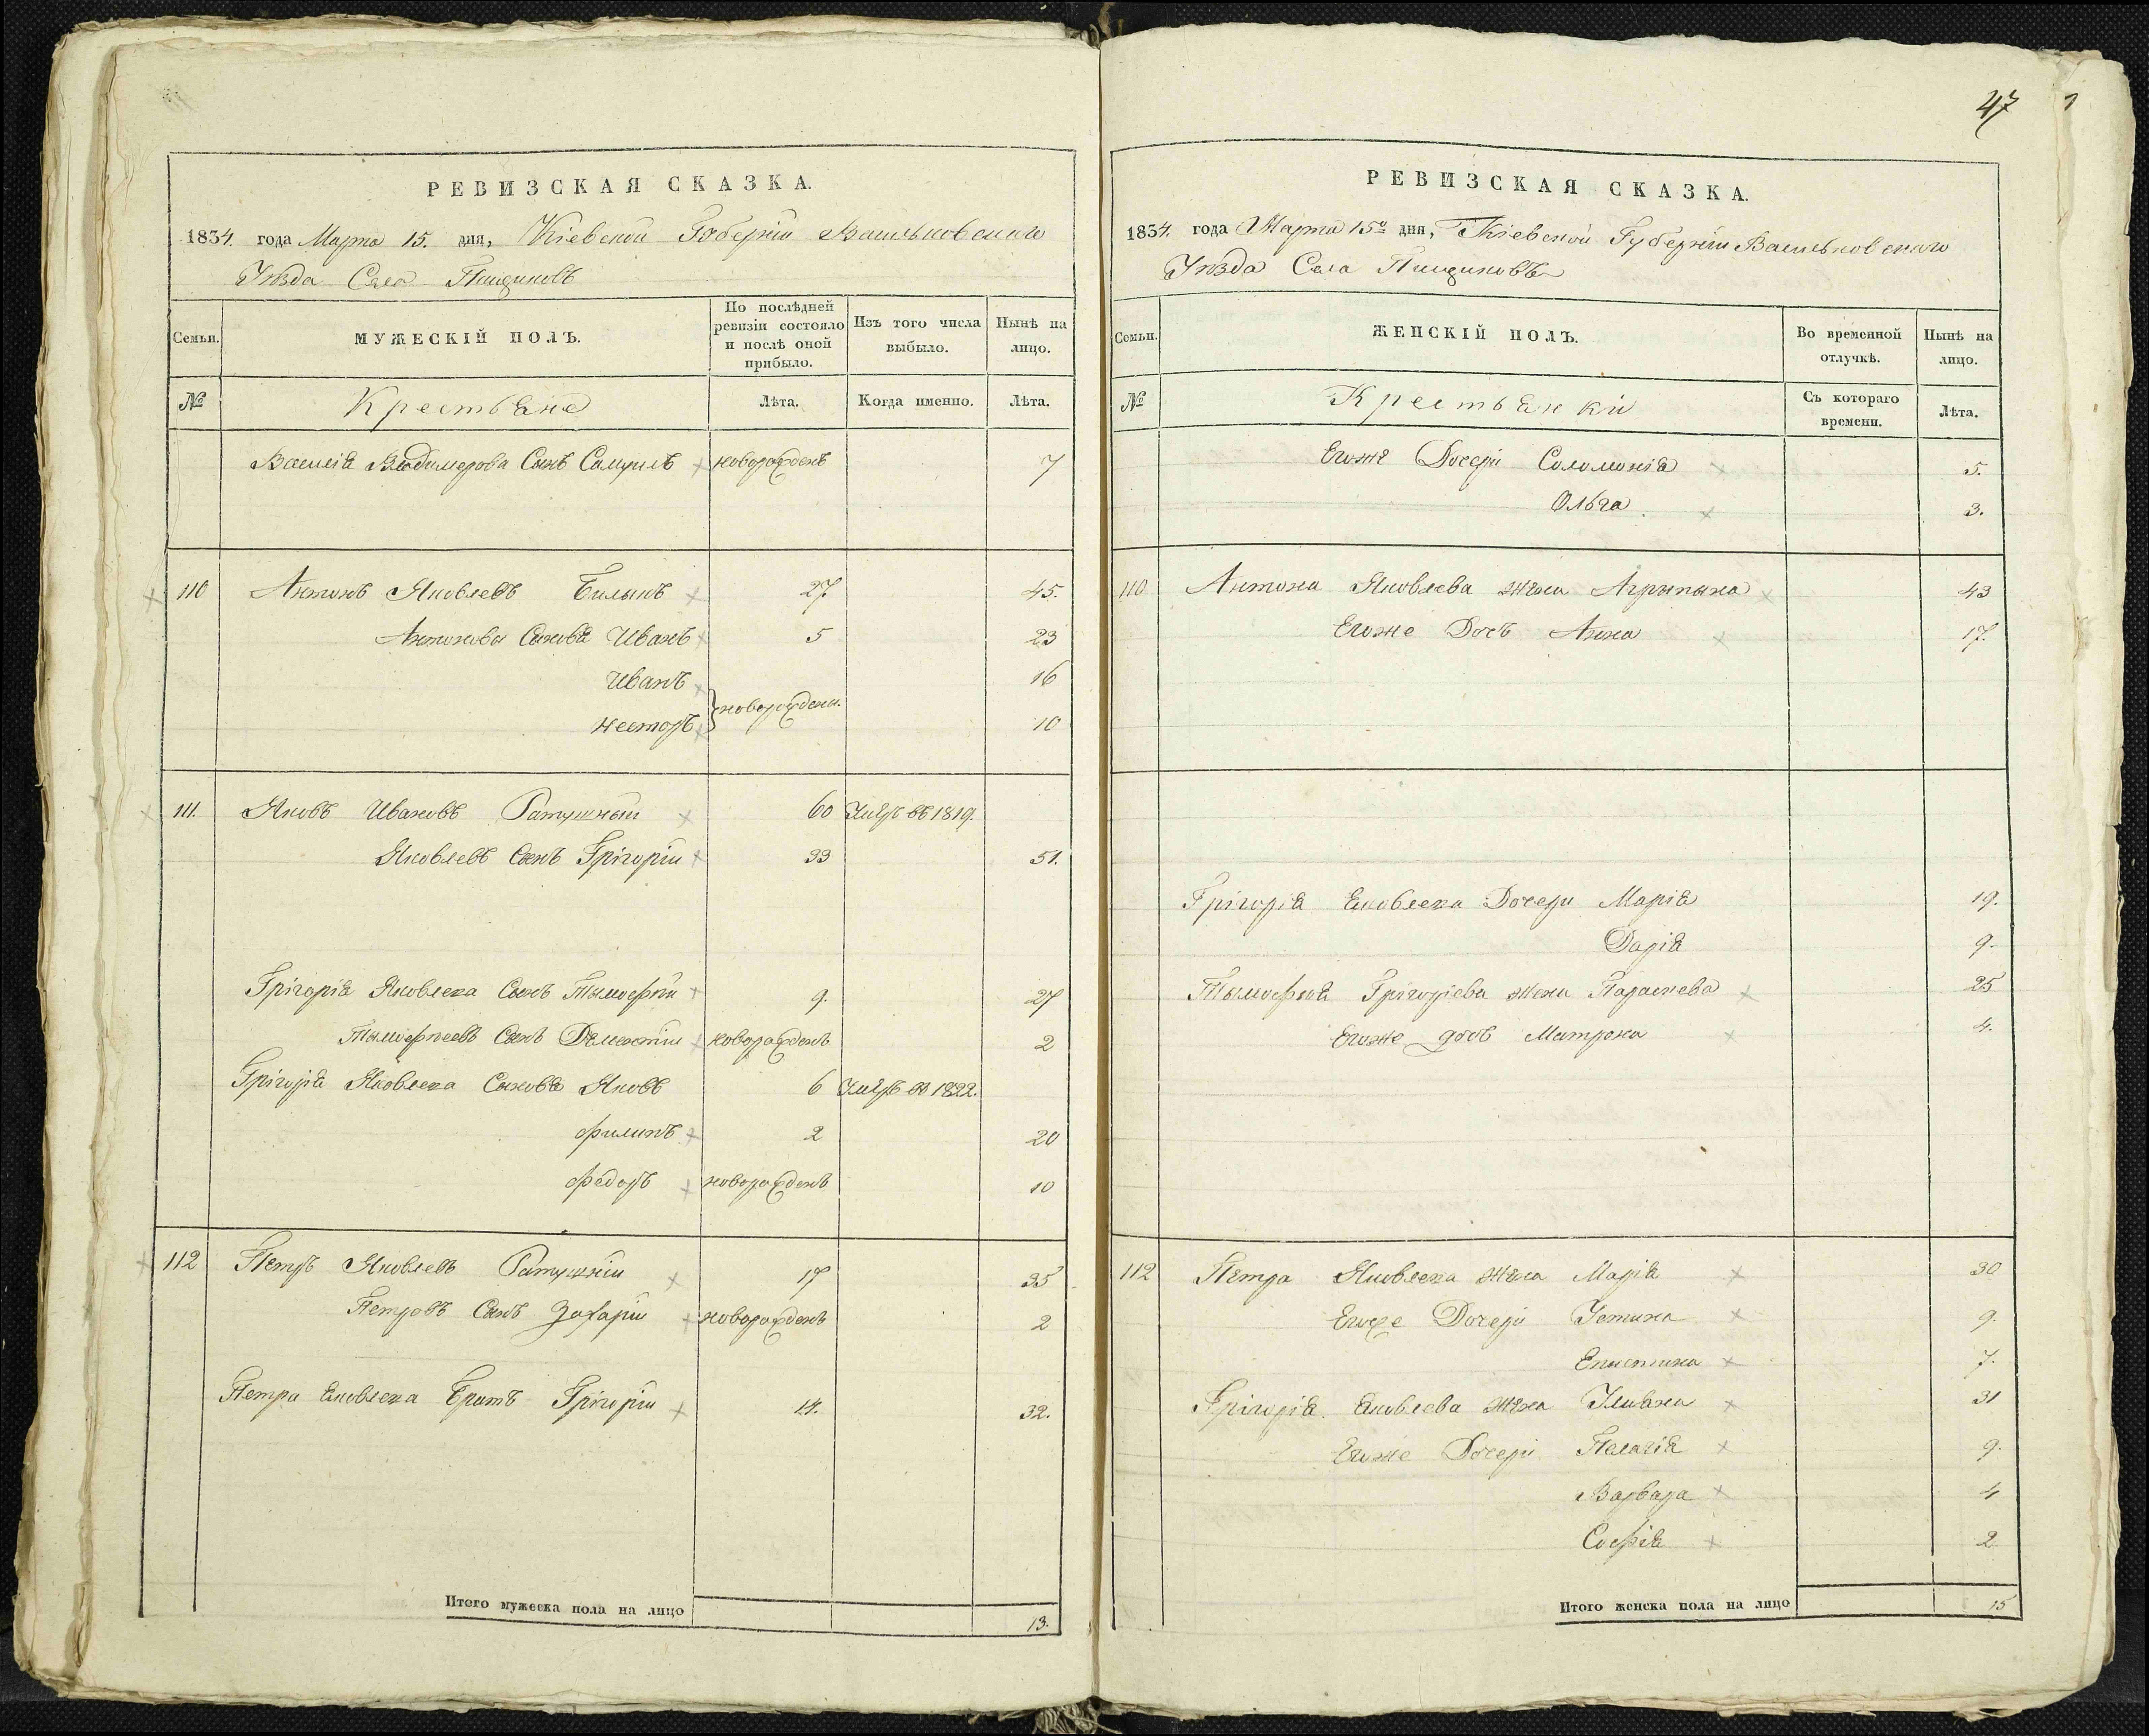 РЕВИЗСКАЯ СКАЗКА.
1834. года Марта 15. дня, Кіевской Губерніи Васильковскаго
Уѣзда Села Пищиковъ
Семьи. МУЖЕСКІЙ ПОЛЪ. По послѣдней ревизіи состояло и послѣ оной прибыло. Изъ того числа выбыло. Нынѣ на лицо.
№ Крестьяне Лѣта. Когда именно. Лѣта.
Василія Сынъ новорожденъ 7
110 Антонъ Яковлевъ Билыкъ 27 45.
Антоновы Сыновя Иванъ 5 23
Иванъ 16
новорождены.
Несторъ 10
111. Яковъ Ивановъ Ратушный 60 Умеръ въ 1819.
Яковлевъ Сынъ Григорій 33 51.
Григорія Яковлева Сынъ Тымофѣй 9. 27
Тымофѣевъ Сынъ Дементій новорожденъ 2
Григорія Яковлева Сыновя Яковъ 6 Умеръ въ 1822.
Филипъ 2 20
Федоръ новорожденъ 10
112 Петръ Яковлевъ Ратушній 17 35
Петровъ Сынъ Захарій новорожденъ 2
Петра Яковлева Братъ Григорій 14. 32.
Итого мужеска пола на лицо 13.
47
РЕВИЗСКАЯ СКАЗКА.
1834. года Марта 15го дня, Кіевской Губерніи Васильковскаго
Уѣзда Села Пищиковъ
Семьи. ЖЕНСКІЙ ПОЛЪ. Во временной отлучкѣ. Нынѣ на лицо.
№ Крестьянки Съ котораго времени. Лѣта.
Егоже Дочери Соломонія 5.
Ольга 3.
110 Антона Яковлева жена Агрыпына 43
Егоже Дочъ Анна 17.
Григорія Яковлева Дочери Марія 19.
Дарія 9.
Тымофѣя Григоріева жена Параскева 25
Егоже дочъ Матрона 4.
112 Петра Яковлева жена Марія 30
Егоже Дочери Устина 9.
Епистина 7.
Григорія Яковлева жена Ульяна 31
Егоже Дочери Пелагія 9.
Варвара 4
Софія 2
Итого женска пола на лицо 15